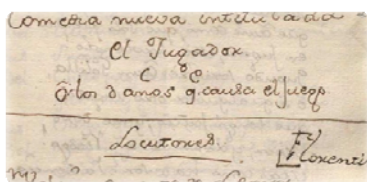 Comedia nueva intitulada
El Jugador
ò los daños q. causa el juego
Locutores.
Florenti